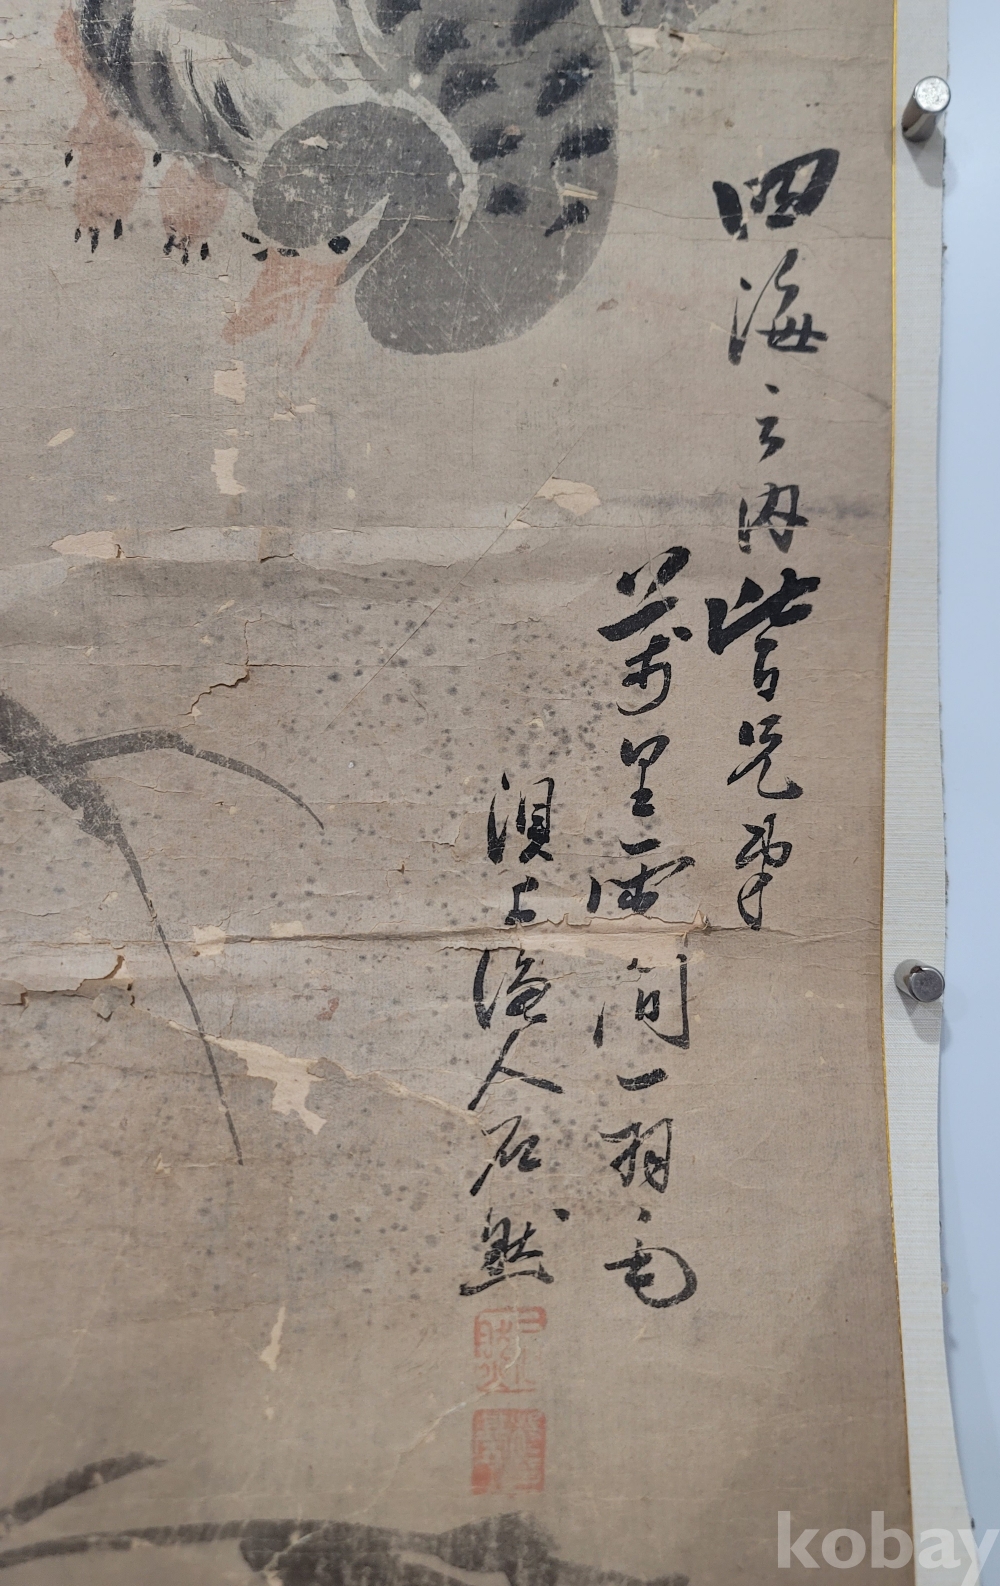 四海之内皆兄弟
萬里雲間一羽毛
浿上漁人石然
kobay